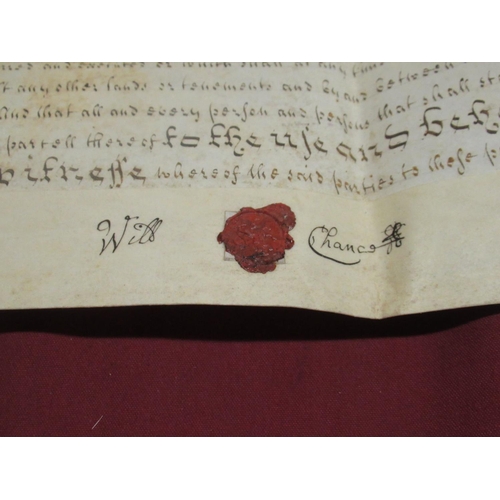 and executed or which shall at any time
any other lands or tenements and by and between
And that all and every person and persons that shall
partell thereof to the use and beho
witnesse whereof the said parties to these p
Will Chance